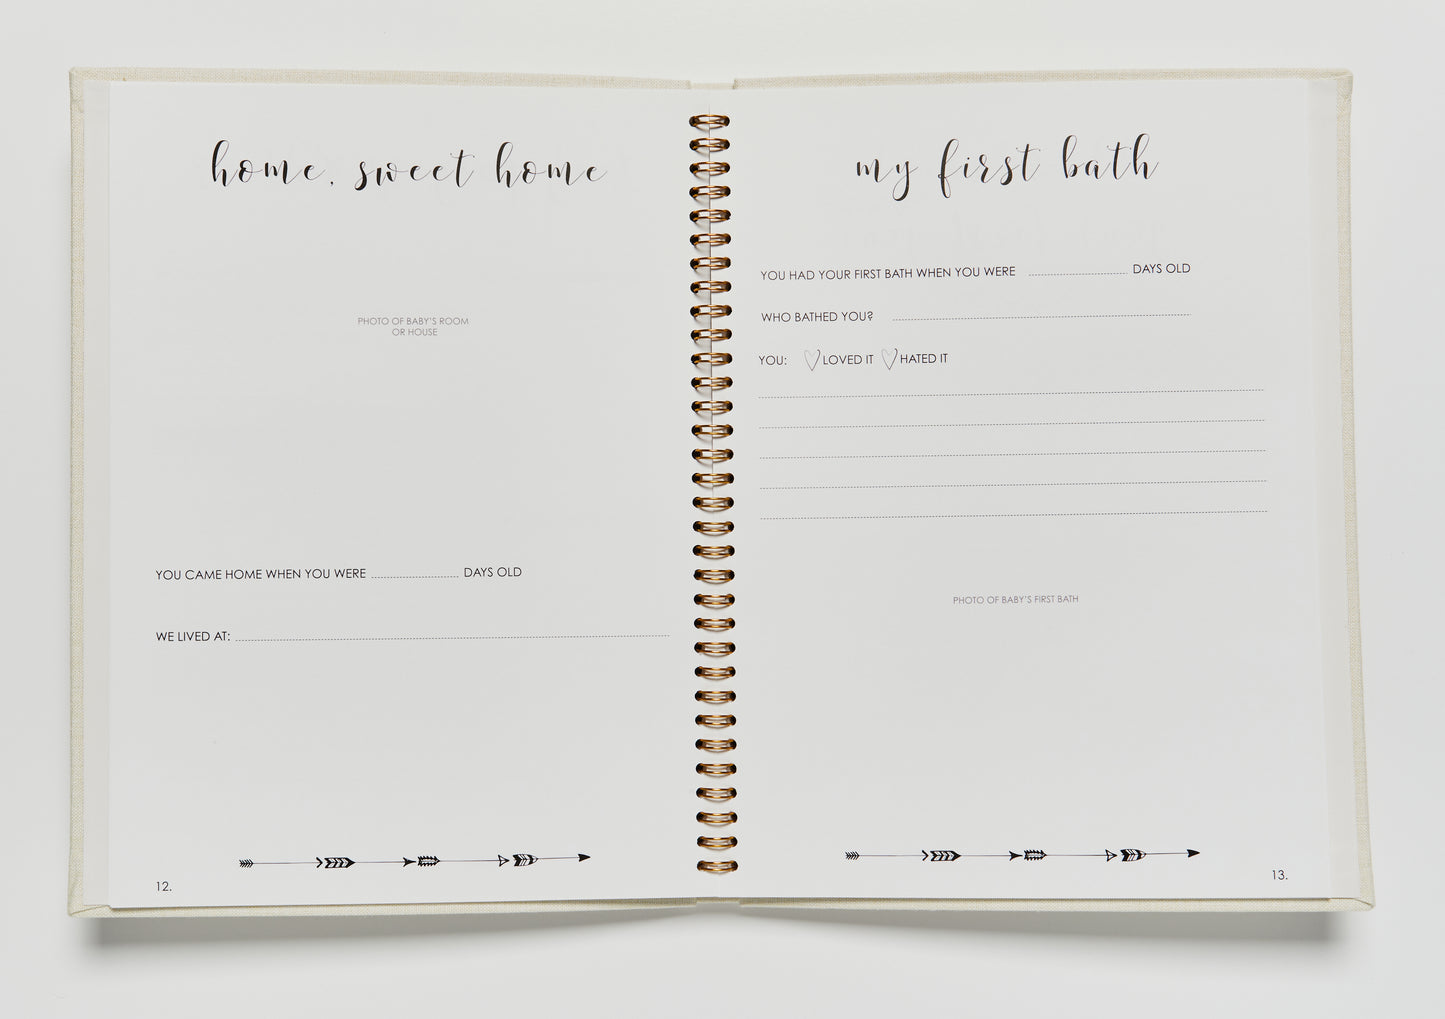 home, sweet home
PHOTO OF BABY'S ROOM
OR HOUSE
YOU CAME HOME WHEN YOU WERE DAYS OLD
WE LIVED AT:
12.
my first bath
YOU HAD YOUR FIRST BATH WHEN YOU WERE DAYS OLD
WHO BATHED YOU?
YOU: LOVED IT HATED IT
PHOTO OF BABY'S FIRST BATH
13.